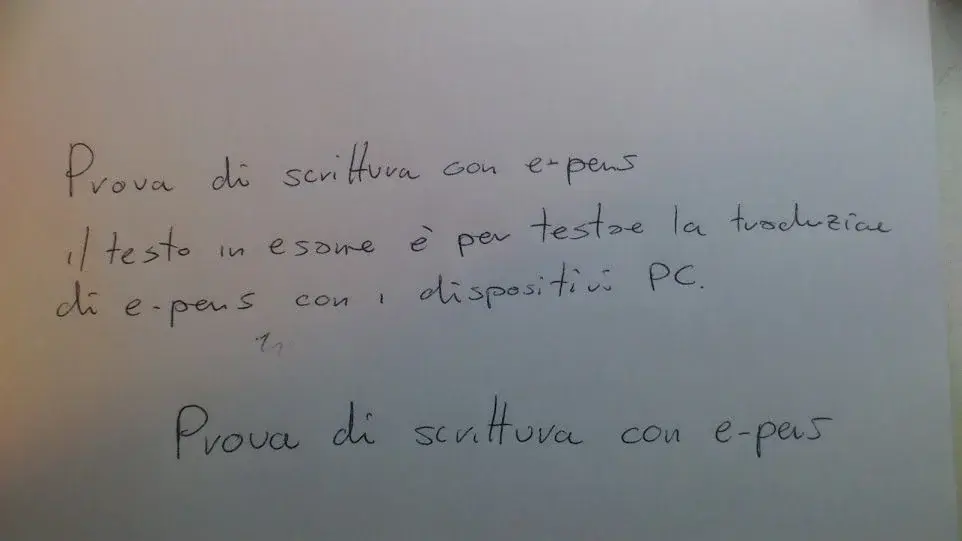 Prova di scrittura con e-pens
il testo in esame è per testare la traduzione
di e-pens con i dispositivi PC.
Prova di scrittura con e-pens